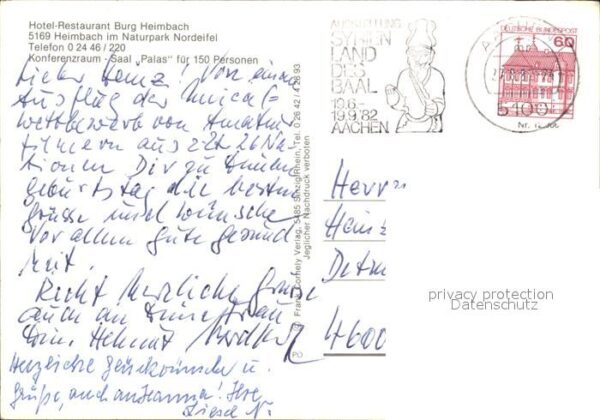 Hotel-Restaurant Burg Heimbach
5169 Heimbach im Naturpark Nordeifel
Telefon 0 24 46 / 220
Konferenzraum - Saal „Palas" für 150 Personen
AUSSTELLUNG
SYRIEN
LAND
DES
BAAL
19.6.-
19.9.82
AACHEN
DEUTSCHE BUNDESPOST
60
5100
Lieber Heinz! Von einem
Ausflug der
wettbewerb von Amateur
filmern aus 26 Na-
tionen Dir zu Deinem
Geburtstag die besten
Grüsse und wünsche
vor allem gute Gesund
heit.
Recht herzliche Grüsse
auch an Deine Frau
Dein Helmut
Herzliche Glückwünsche u.
Grüße, auch an Hanna! Ihre
N.
Franz Dornhely Verlag, 5485 Sinzig/Rhein, Tel. 0 26 42 / 4 26 93
Jeglicher Nachdruck verboten
Herrn
Heinz
Detm
4600
privacy protection
Datenschutz